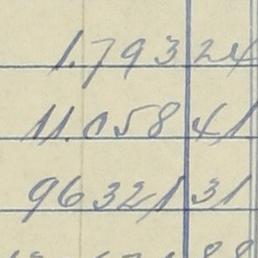 1.793 24
11.058 41
96321 31